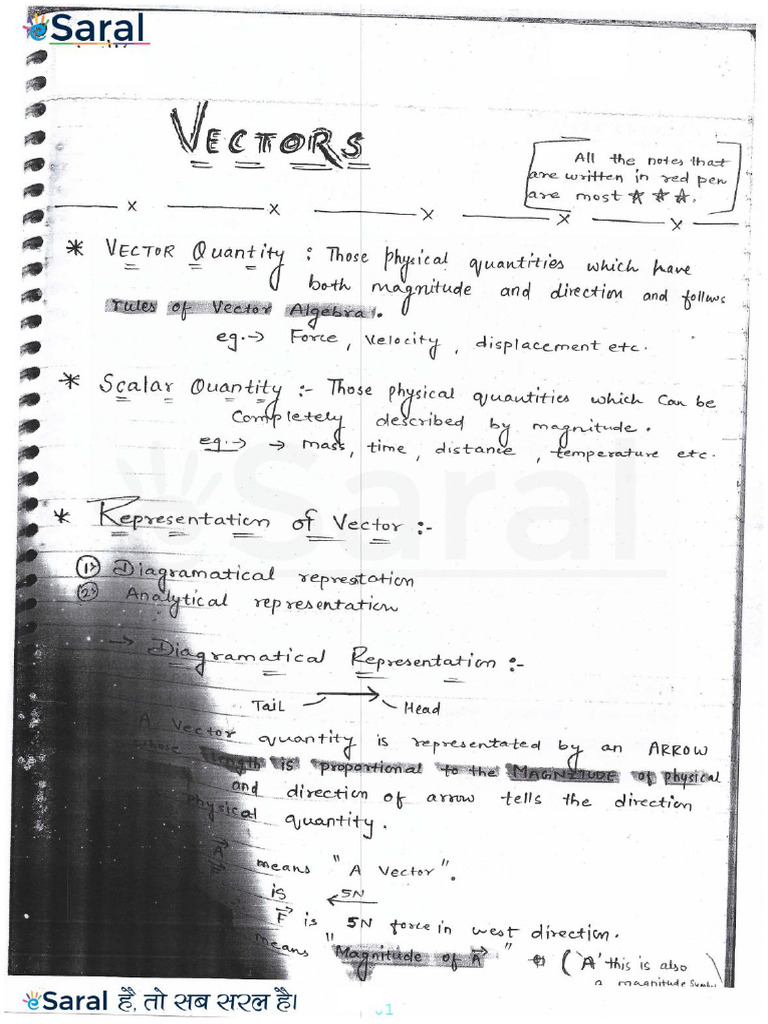 eSaral
VECTORS
All the notes that
are written in red pen
are most ☆ ☆ ☆.
* VECTOR Quantity : Those physical quantities which have
both magnitude and direction and follows
rules of Vector Algebra.
eg.→ Force, velocity, displacement etc.
* Scalar Quantity :- Those physical quantities which can be
completely described by magnitude.
eg.→ → mass, time, distance, temperature etc.
Saral
* Representation of Vector :-
1) Diagramatical represtation
2) Analytical representation
→ Diagramatical Representation :-
Tail Head
A Vector quantity is representated by an ARROW
whose length is proportional to the MAGNITUDE of physical
and direction of arrow tells the direction
physical quantity.
A⃗ means "A Vector".
is 5N
F⃗ is 5N force in west direction.
means "Magnitude of A⃗" (A' this is also
a magnitude Symbol
eSaral है, तो सब सरल है।
1